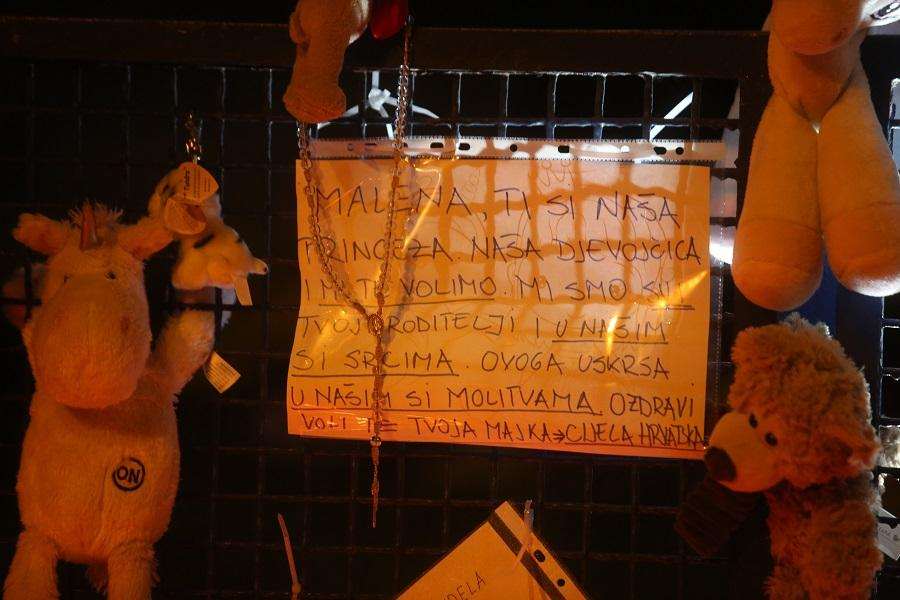 MALENA, TI SI NAŠA
PRINCEZA. NAŠA DJEVOJČICA
I MI TE VOLIMO. MI SMO SVI
TVOJI RODITELJI I U NAŠIM
SI SRCIMA. OVOGA USKRSA
U NAŠIM SI MOLITVAMA. OZDRAVI
VOLI TE TVOJA MAJKA→CIJELA HRVATSKA
ON